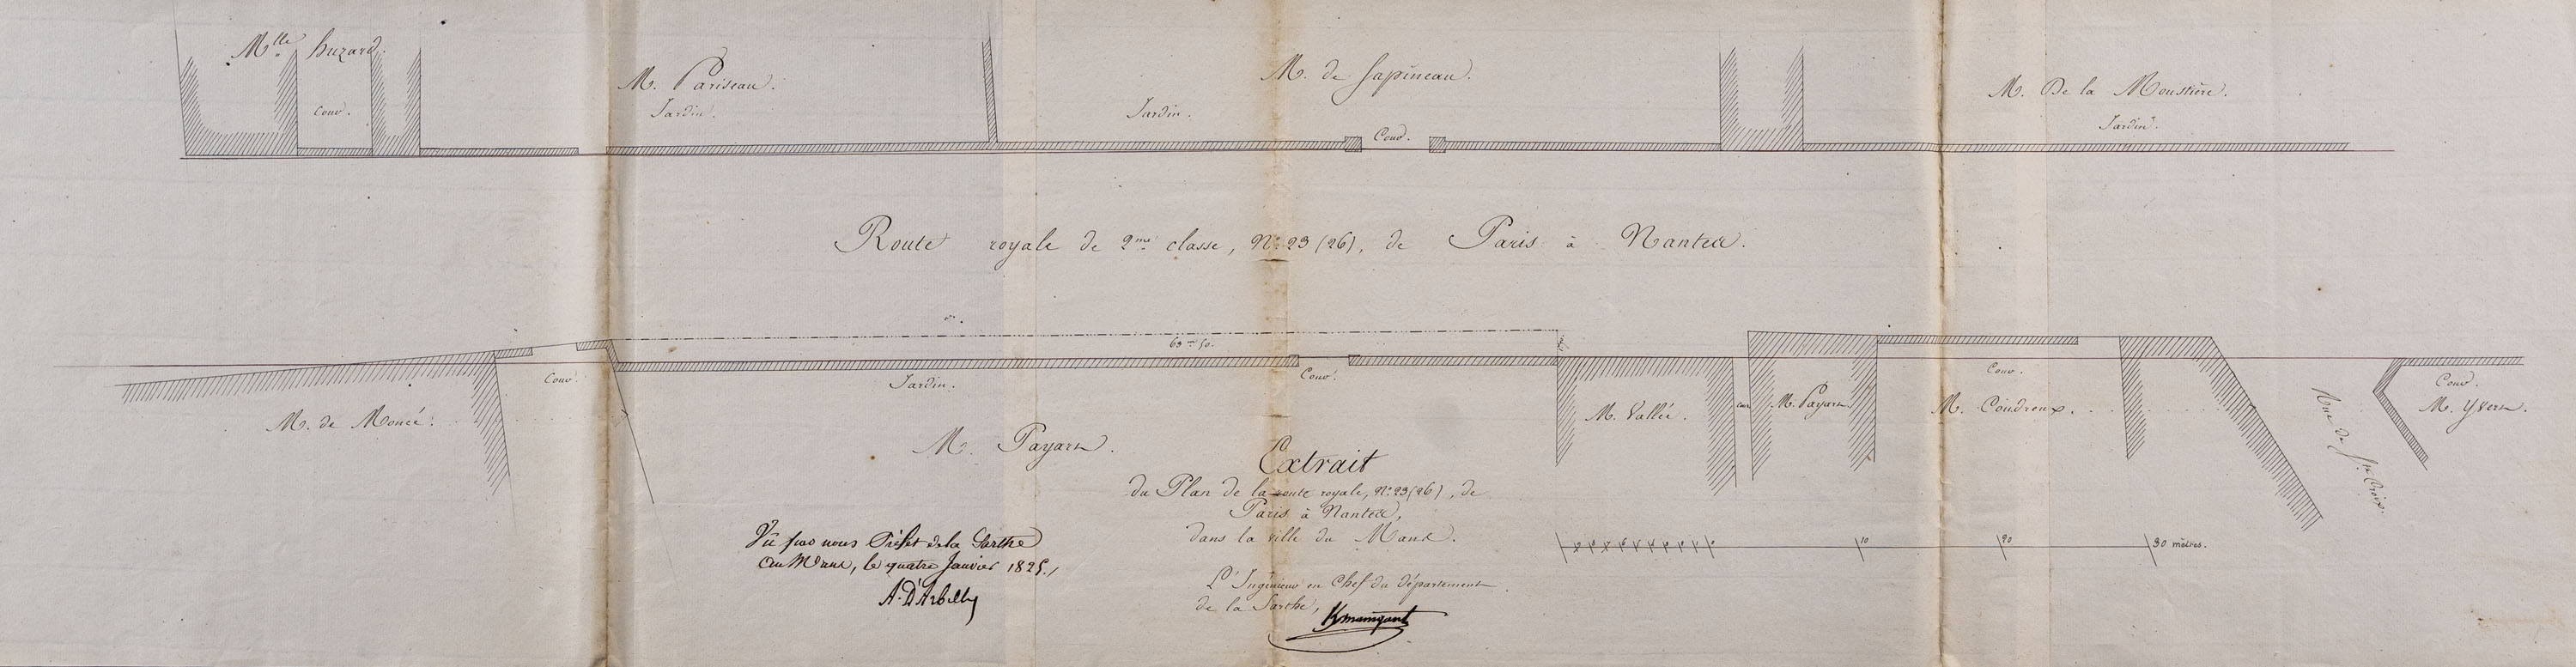 M.lle huzard.
Cour.
M. Pariseau.
Jardin.
Jardin.
M. de Sapineau.
Cour.
M. De la Moustière.
Jardin.
Route royale de 2.me classe, N.o 23 (26), de Paris à Nantes.
63.m 50.
Cour.
Jardin.
Cour.
Cour.
Cour.
M. de Moncé.
M. Vallée.
Cour
M. Payars
M. Coudreux.
M. Yvers.
Rue de S.te Croix.
M. Payars.
Extrait
du Plan de la route royale, N.o 23 (26), de
Paris à Nantes,
dans la ville du Mans.
Vu par nous Préfet de la Sarthe
Au Mans, le quatre Janvier 1825.
A. D'Arbelles
L'Ingénieur en Chef du département
de la Sarthe,
0
10
20
30 mètres.